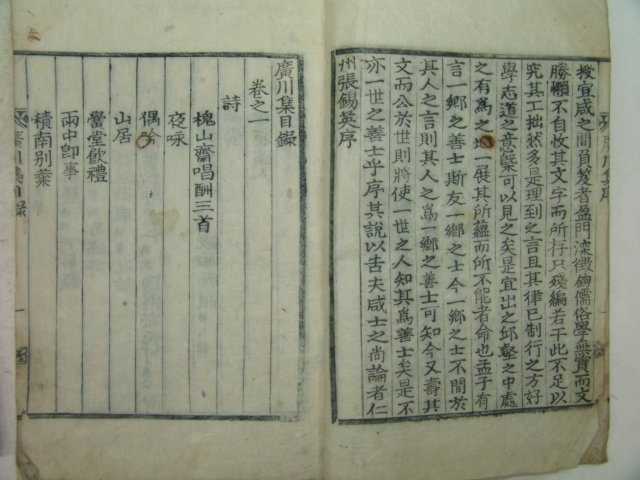 授宜咸之間負笈者盈門深徵鉤儒俗學無實而文
勝癩不自收其文字而所存只殘編若干此不足以
究其工拙然多是理到之言且其律已制行之方好
學志道之意槩可以見之矣是宜出之邱壑之中處
之有爲之地一展其所蘊而所不能者命也孟子有
言一鄉之善士斯友一鄉之士今一鄉之士不間於
其人之言則其人之爲一鄉之善士可知今又壽其
文而公於世則將使一世之人知其爲善士矣是不
亦一世之善士乎序其說以告夫咸士之尚論者仁
州張錫英序
廣川集目錄
卷之一
詩
槐山齋唱酬三首
夜咏
偶吟
山居
黌堂飮禮
雨中卽事
積南別業
廣川集序
廣川集目錄
一